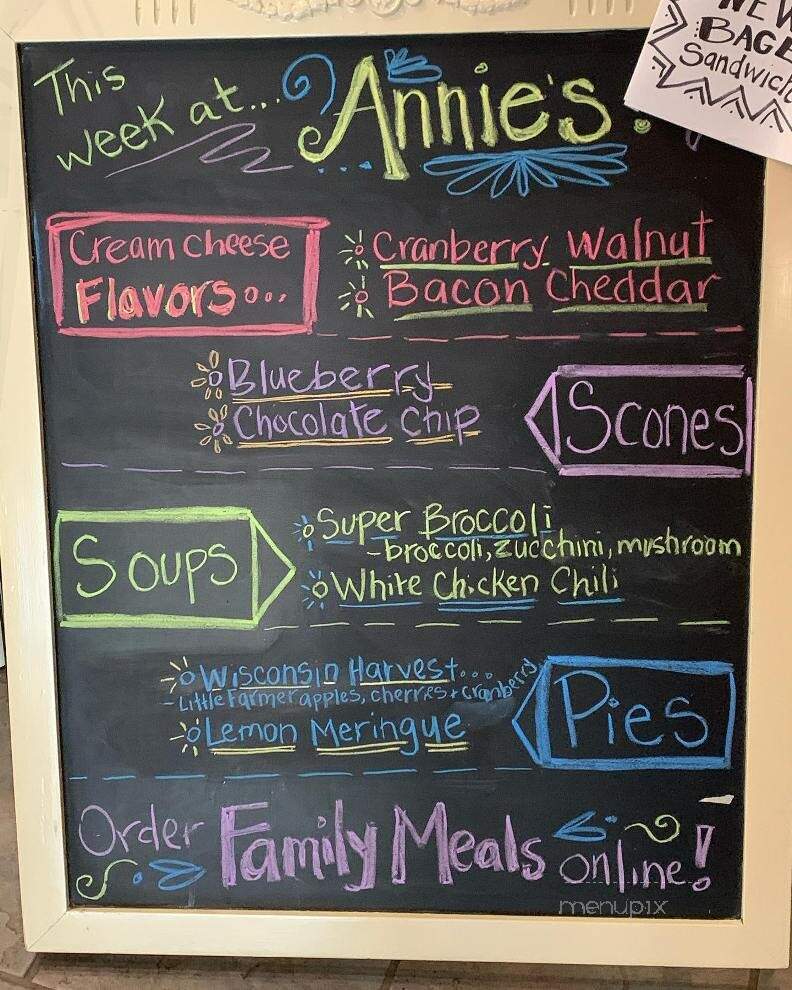 NEW
BAGE
Sandwich
This
week at...
Annie's.
Cream cheese
Flavors...
Cranberry Walnut
Bacon Cheddar
Blueberry
Chocolate chip
Scones
Soups
Super Broccoli
-broccoli, zucchini, mushroom
White Chicken Chili
Wisconsin Harvest...
- Little Farmer apples, cherries + Cranberry
Lemon Meringue
Pies
Order Family Meals online!
menupix